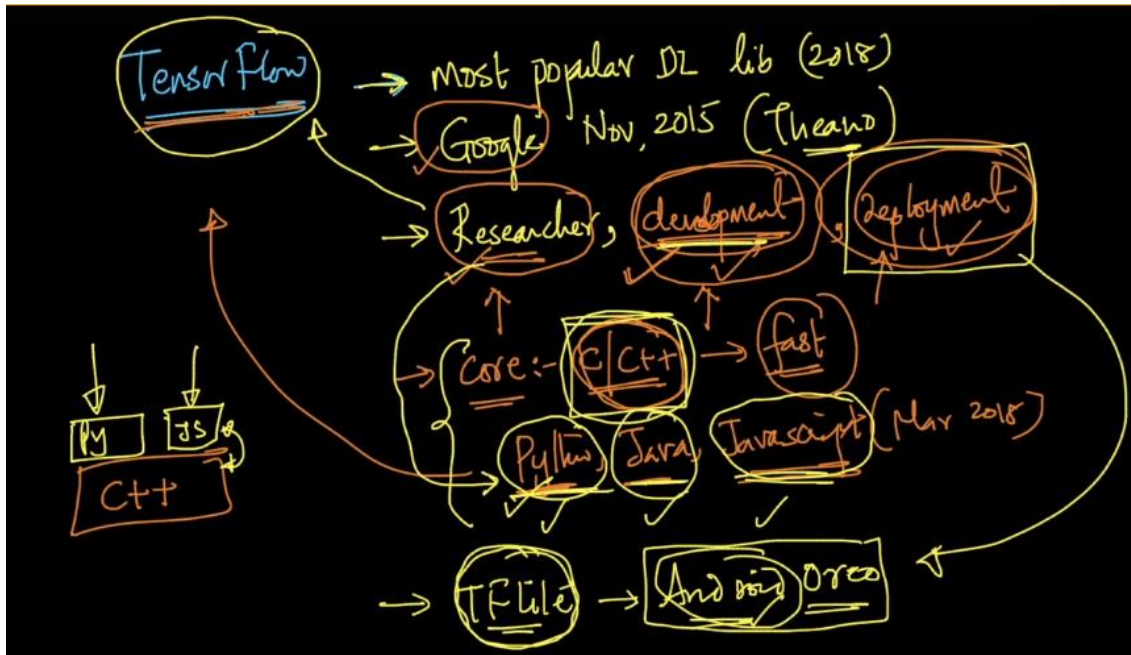 TensorFlow
→ most popular DL lib (2018)
→ Google Nov, 2015 (Theano)
→ Researcher, development, Deployment
→ Core:- C/C++ → fast
Python, Java, Javascript (Mar 2018)
PY JS
C++
→ TFlite → Android Oreo